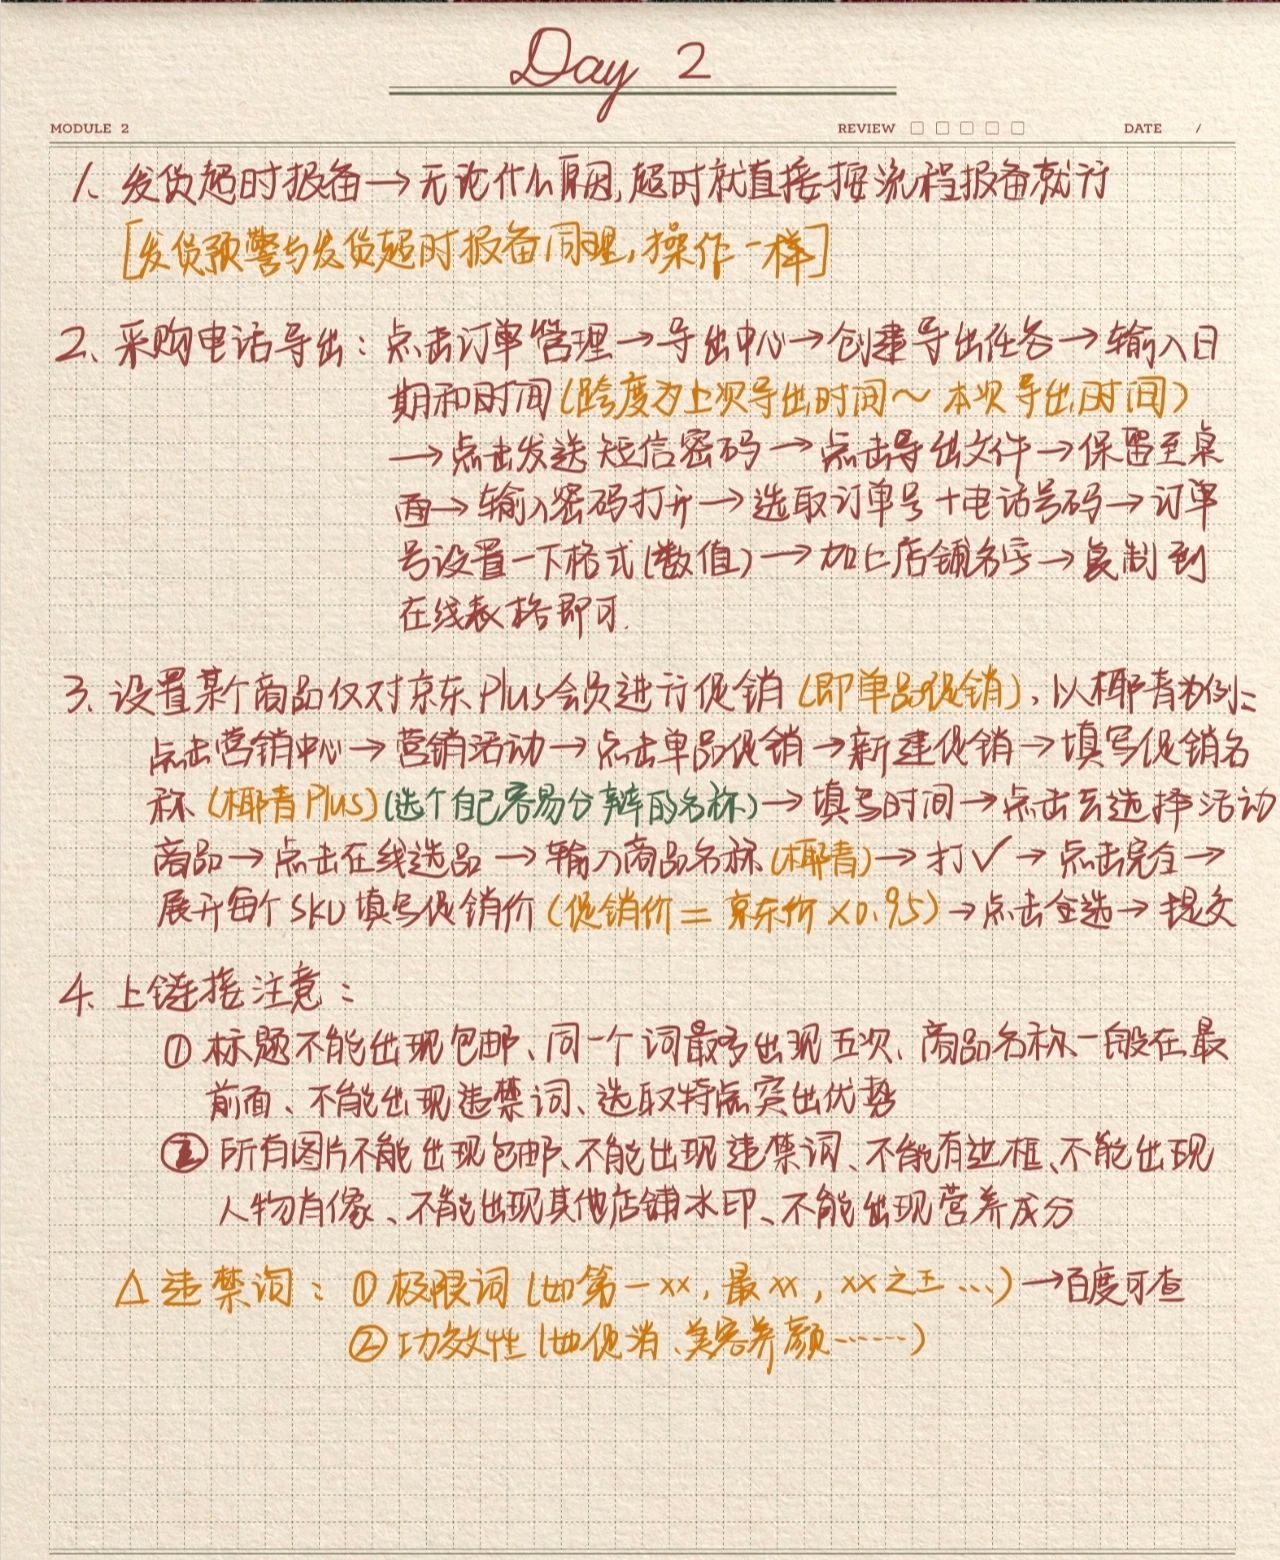 Day 2
MODULE 2 REVIEW DATE /
1. 发货超时报备→无论什么原因,超时就直接按流程报备就行
[发货预警与发货超时报备同理,操作一样]
2. 采购电话导出:点击订单管理→导出中心→创建导出任务→输入日
期和时间(跨度为上次导出时间~本次导出时间)
→点击发送短信密码→点击导出文件→保留至桌
面→输入密码打开→选取订单号+电话号码→订单
号设置一下格式(数值)→加上店铺名字→复制到
在线表格即可.
3. 设置某个商品仅对京东Plus会员进行促销(即单品促销),以椰青为例:
点击营销中心→营销活动→点击单品促销→新建促销→填写促销名
称(椰青Plus)(选个自己容易分辨的名称)→填写时间→点击去选择活动
商品→点击在线选品→输入商品名称(椰青)→打✓→点击完全→
展开每个SKU填写促销价(促销价=京东价×0.95)→点击全选→提交
4. 上链接注意:
① 标题不能出现包邮、同一个词最多出现五次、商品名称一般在最
前面、不能出现违禁词、选取特点突出优势
② 所有图片不能出现包邮、不能出现违禁词、不能有边框、不能出现
人物肖像、不能出现其他店铺水印、不能出现营养成分
△违禁词:①极限词(如第一xx,最xx,xx之王...)→百度可查
②功效性(如促消、美容养颜……)